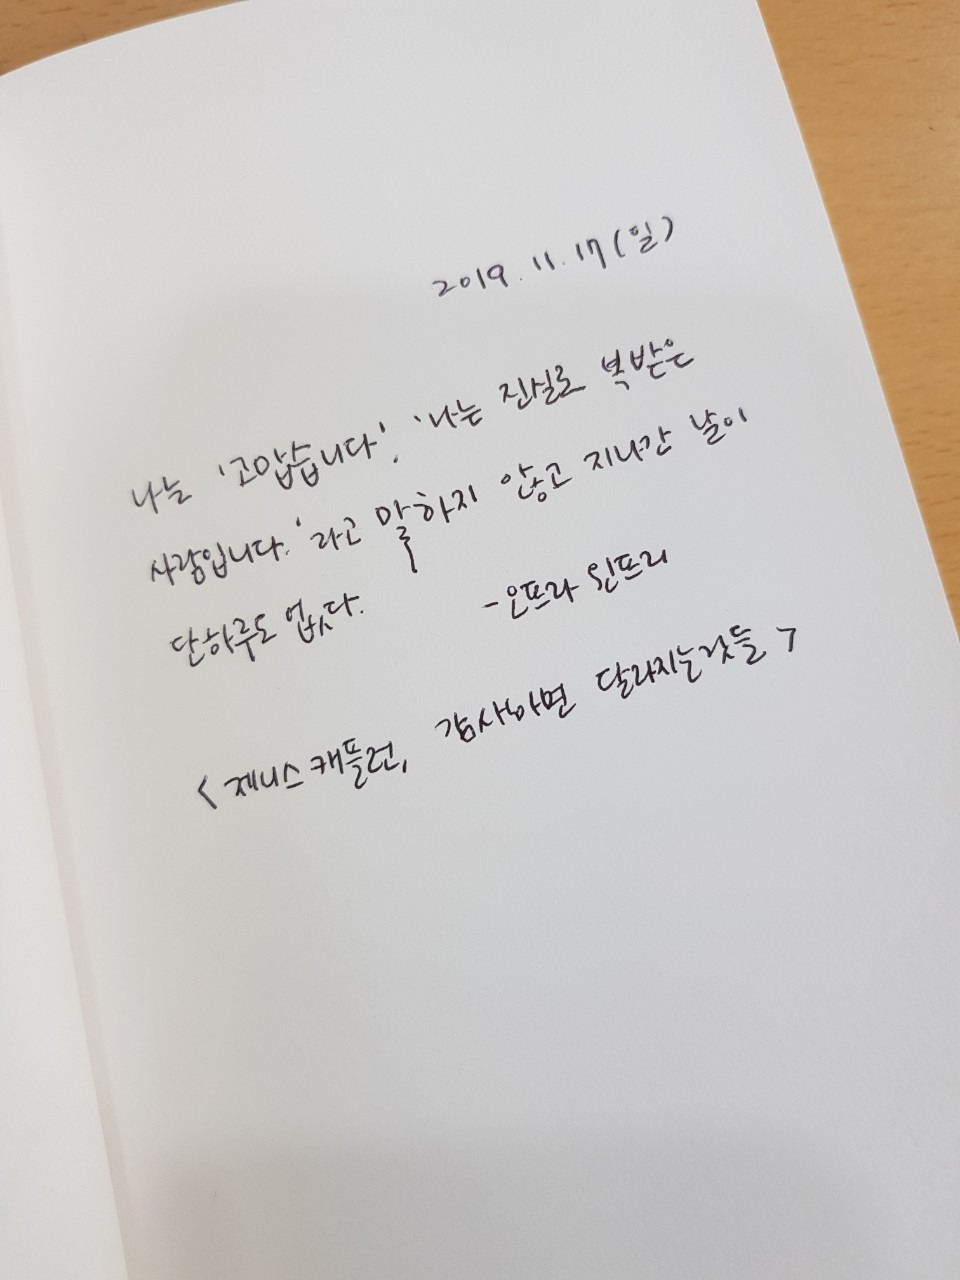 2019. 11. 17 (일)
나는 '고맙습니다', '나는 진실로 복받은
사람입니다.'라고 말하지 않고 지나간 날이
단하루도 없다.
-오프라 윈프리
<제니스 캐플런, 감사하면 달라지는것들>